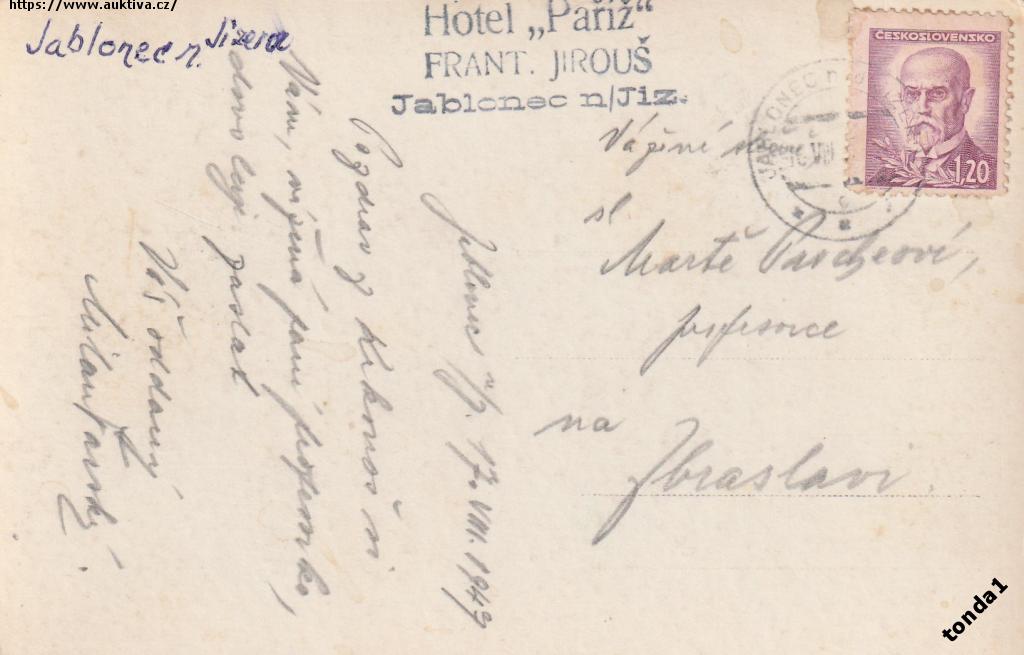 https://www.auktiva.cz/
Jablonec n. Jizerou
Hotel „Paříž“
FRANT. JIROUŠ
Jablonec n/Jiz.
ČESKOSLOVENSKO
1,20
JABLONEC n
VIII
Vážené
sl
Martě
profesorce
na
Zbraslavi.
Jablonec n/J. 17. VIII. 1947
Pozdrav z Krkonoš si
Vám, vážená paní profesorko,
dovoluje zaslat
Váš oddaný
Milan
tonda1